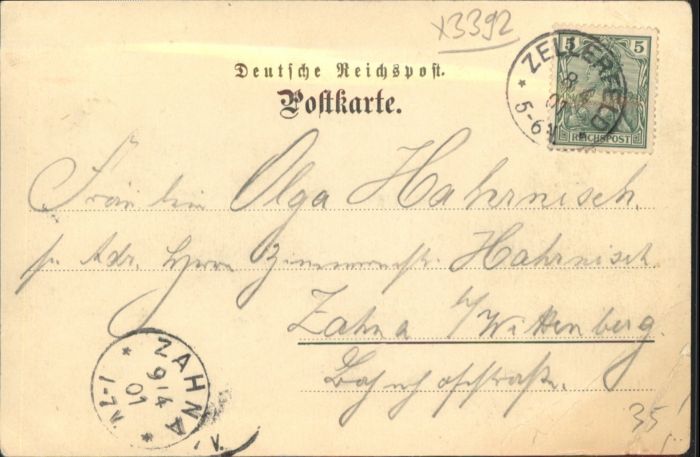 x3392
Deutsche Reichspost.
Postkarte.
5 5
REICHSPOST
ZELLERFELD
8
4
01
5-6N
Fräulein Olga Hahrnisch.
p. Adr. Herrn Zimmermstr. Hahrnisch.
Zahna b/Wittenberg.
Bahnhofstraße.
ZAHNA
9/4
01
35